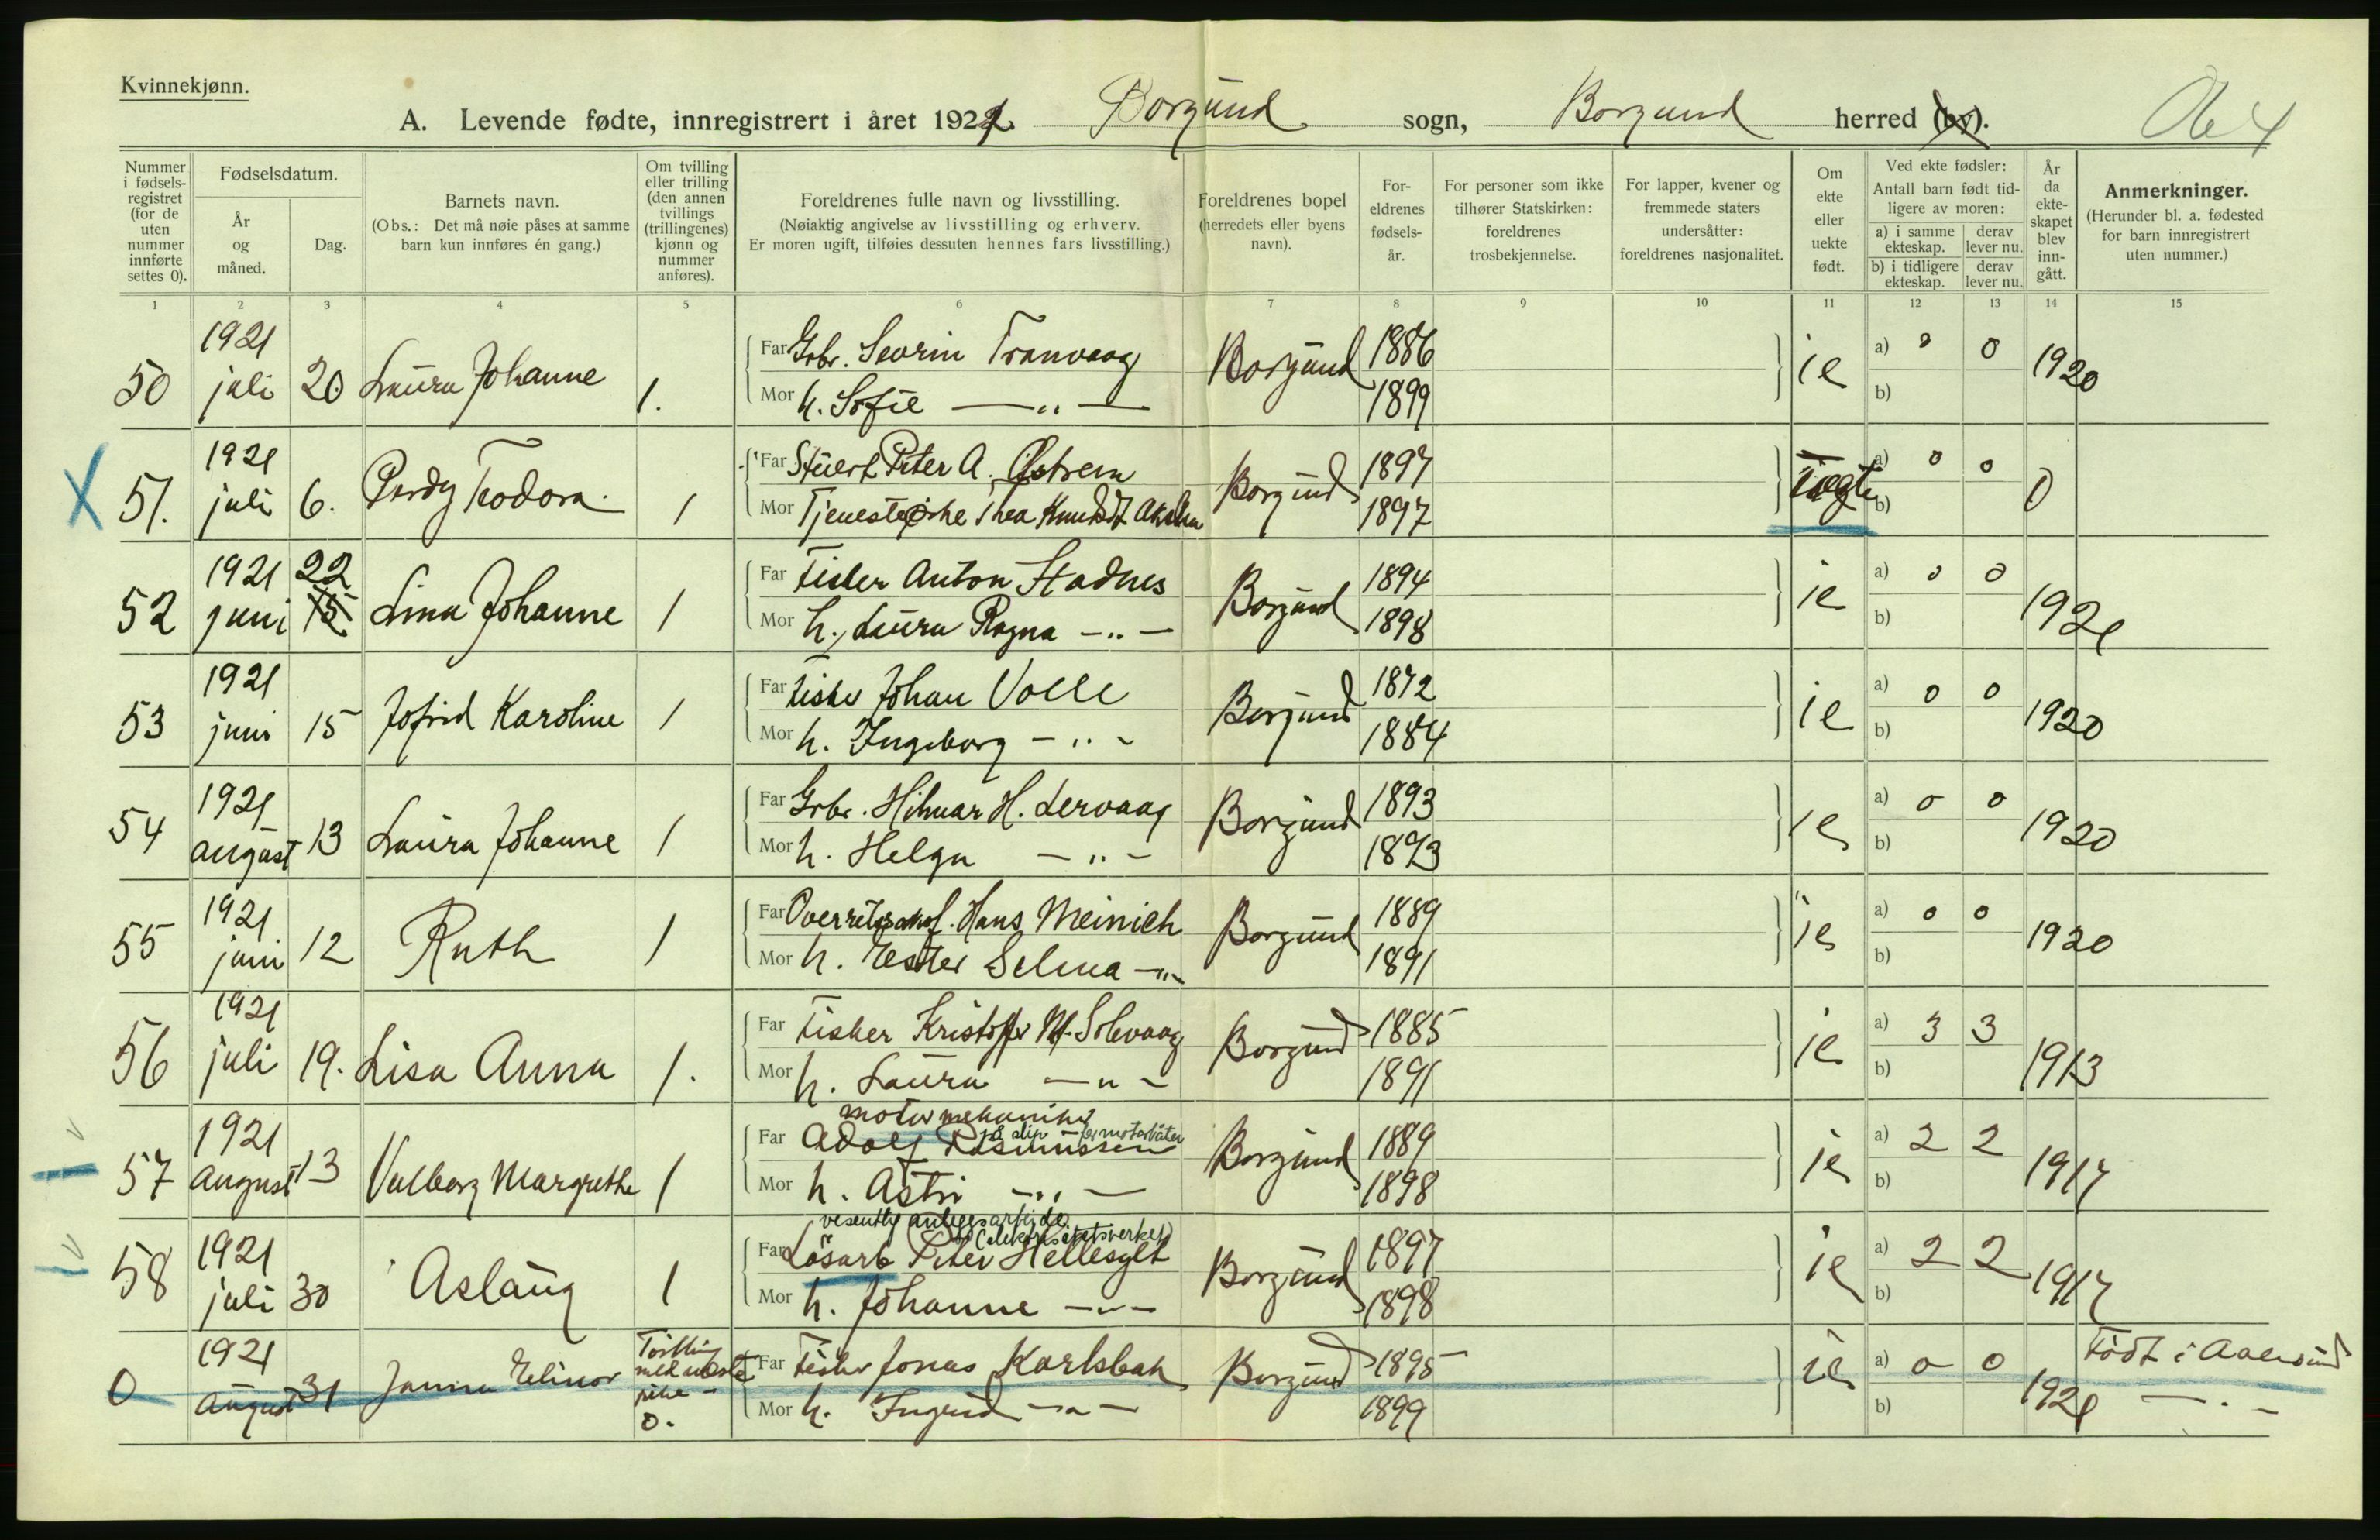 Kvinnekjønn.
A. Levende fødte, innregistrert i året 1921. Borgund sogn, Borgund herred (by).
Nummer i fødsels-registret (for de uten nummer innførte settes 0).
Fødselsdatum.
År og måned.
Dag.
Barnets navn.
(Obs.: Det må nøie påses at samme barn kun innføres én gang.)
Om tvilling eller trilling (den annen tvillings (trillingenes) kjønn og nummer anføres).
Foreldrenes fulle navn og livsstilling.
(Nøiaktig angivelse av livsstilling og erhverv.
Er moren ugift, tilføies dessuten hennes fars livsstilling.)
Foreldrenes bopel (herredets eller byens navn).
For-eldrenes fødsels-år.
For personer som ikke tilhører Statskirken: foreldrenes trosbekjennelse.
For lapper, kvener og fremmede staters undersåtter: foreldrenes nasjonalitet.
Om ekte eller uekte født.
Ved ekte fødsler:
Antall barn født tid-ligere av moren:
a) i samme ekteskap. derav lever nu.
b) i tidligere ekteskap. derav lever nu.
År da ekte-skapet blev inn-gått.
Anmerkninger.
(Herunder bl. a. fødested for barn innregistrert uten nummer.)
1 2 3 4 5 6 7 8 9 10 11 12 13 14 15
50 1921 juli 20 Laura Johanne 1.
Far Grbr. Sevrin Tranvaag Borgund 1886 ie a) 0 0 1920
Mor h. Sofie —„— 1899 b)
51. 1921 juli 6. Perdy Teodora 1
Far Stuert Peter A. Østrem Borgund 1897 a) 0 0 0
Mor Tjenestepike Thea 1897 b)
52 1921 juni 22 15 Lina Johanne 1
Far Fisker Anton Stadnes Borgund 1894 ie a) 0 0 1921
Mor h. Laura Ragna —„— 1898 b)
53 1921 juni 15 Jofrid Karoline 1
Far Fisker Johan Volle Borgund 1872 ie a) 0 0 1920
Mor h. Ingeborg —„— 1884 b)
54 1921 august 13 Laura Johanne 1
Far Grbr. Hilmar H. Lervaag Borgund 1893 ie a) 0 0 1920
Mor h. Helga —„— 1893 b)
55 1921 juni 12 Ruth 1
Far Hans Meinich Borgund 1889 ie a) 0 0 1920
Mor h. Ester Selma —„— 1891 b)
56 1921 juli 19. Lisa Anna 1.
Far Fisker Kristoffer M. Solevaag Borgund 1885 ie a) 3 3 1913
Mor h. Laura —„— 1891 b)
motormekaniker
på slip for motorbåter
57 1921 august 13 Valborg Margrethe 1
Far Adolf Rasmussen Borgund 1889 ie a) 2 2 1917
Mor h. Astri —„— 1898 b)
vesentlig anlegsarbeide
(elektrisitetsverket)
58 1921 juli 30 Aslaug 1
Far Løsarb Peter Hellesylt Borgund 1897 ie a) 2 2 1917
Mor h. Johanne —„— 1898 b)
0 1921 august 31 Janna Elinor Tvilling med næste pike 0.
Far Fisker Jonas Karlsbak Borgund 1895 ie a) 0 0 1921 Født i Aalesund
Mor h. Ingrid —„— 1899 b) —„—